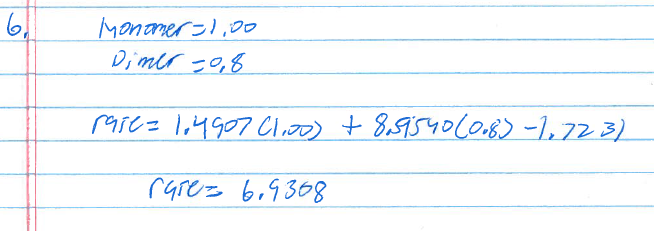 6.
Monomer=1.00
Dimer =0.8
rate= 1.4907(1.00) + 8.9540(0.8) -1.7231
rate= 6.9308